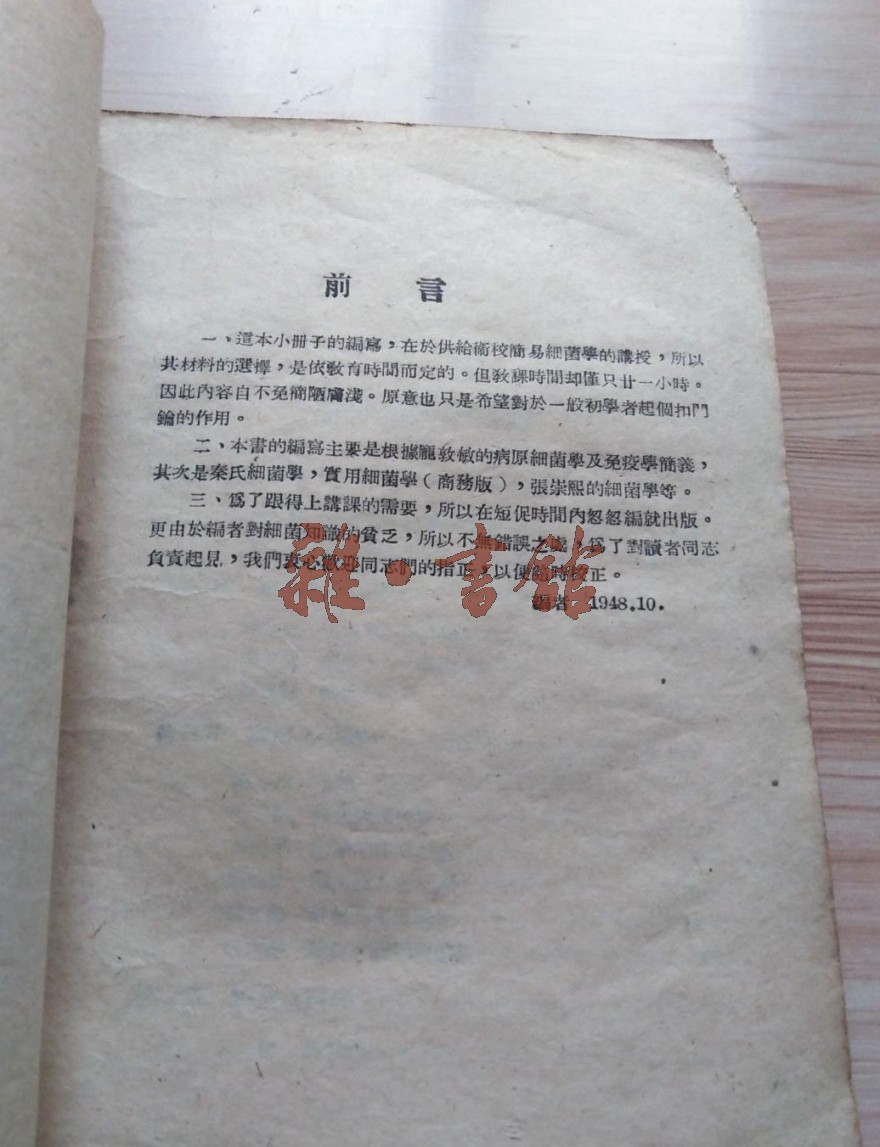 前言
一、這本小冊子的編寫，在於供給衛校簡易細菌學的講授，所以
其材料的選擇，是依敎育時間而定的。但敎課時間却僅只廿一小時。
因此內容自不免簡陋膚淺。原意也只是希望對於一般初學者起個扣門
鑰的作用。
二、本書的編寫主要是根據龐敦敏的病原細菌學及免疫學簡義，
其次是秦氏細菌學，實用細菌學（商務版），張崇熙的細菌學等。
三、爲了跟得上講課的需要，所以在短促時間內怱怱編就出版。
更由於編者對細菌知識的貧乏，所以不無錯誤之處，爲了對讀者同志
負責起見，我們衷心歡迎同志們的指正，以便隨時校正。
編者 1948.10.
雜·書館